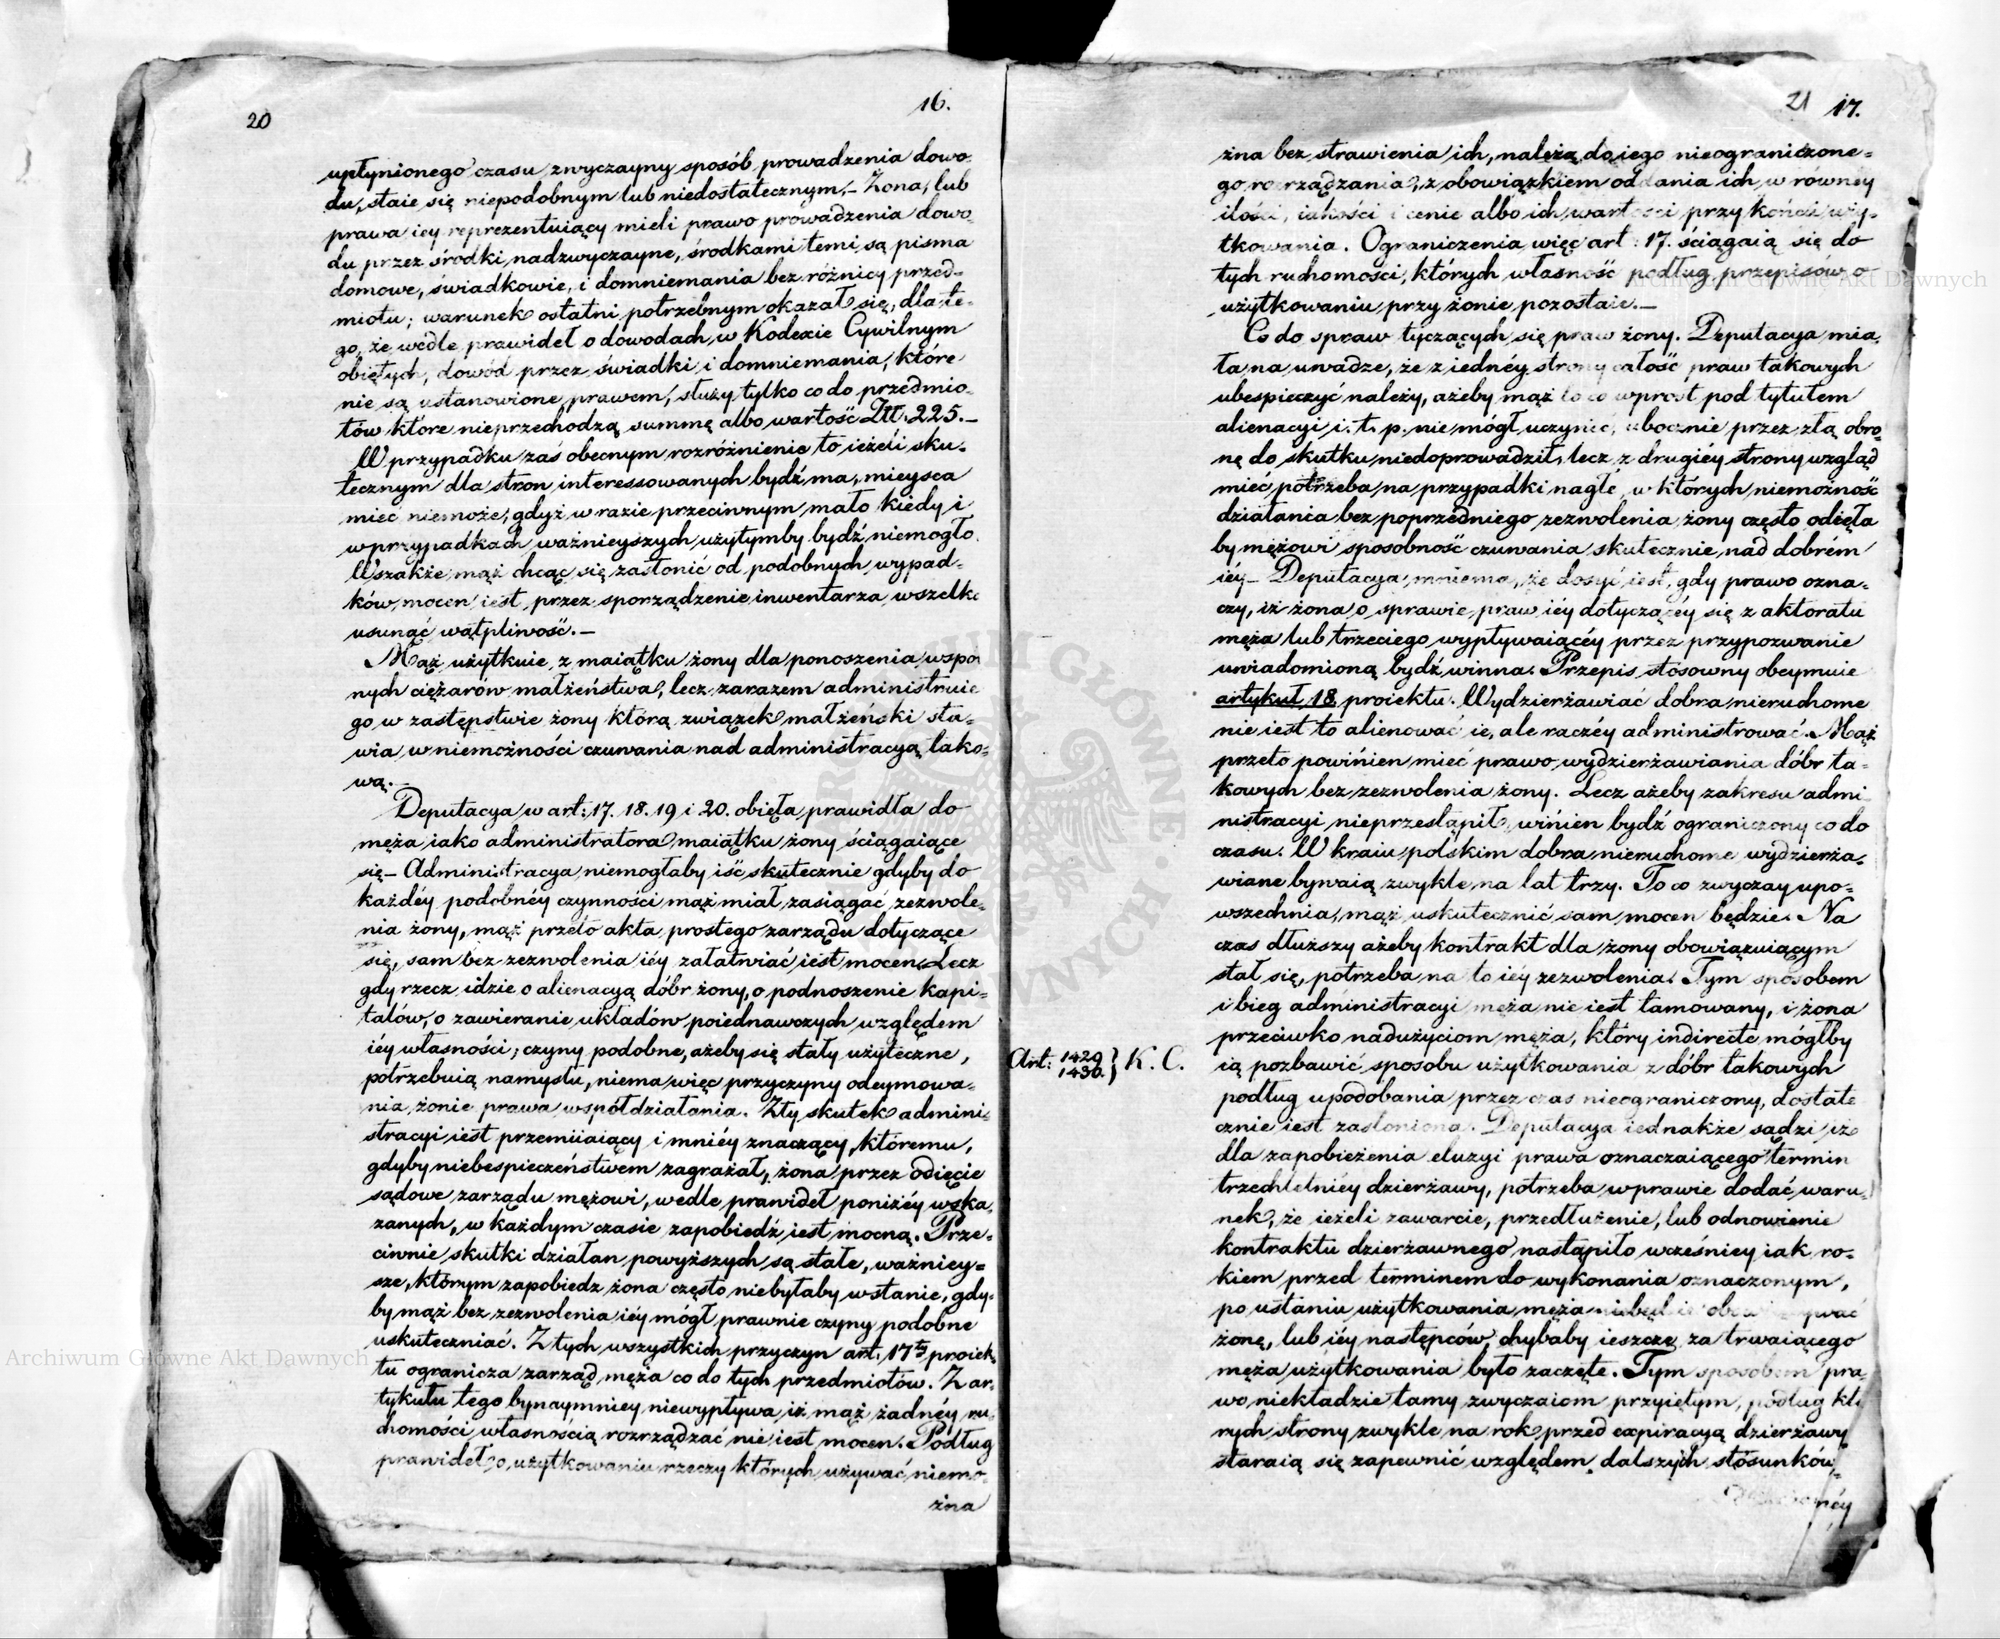 20
16.
upłynionego czasu zwyczayny sposób prowadzenia dowo-
du, staie się niepodobnym lub niedostatecznym. – Żona, lub
prawa iéy reprezentuiący mieli prawo prowadzenia dowo-
du przez środki nadzwyczayne, środkami temi są pisma
domowe, świadkowie, i domniemania bez różnicy przed-
miotu; warunek ostatni potrzebnym okazał się, dla te-
go, że wedle prawideł o dowodach w Kodexie Cywilnym
obiętych, dowód przez świadki i domniemania, które
nie są ustanowione prawem, służy tylko co do przedmio-
tów które nieprzechodzą summę albo wartość Zł. 225. –
W przypadku zaś obecnym rozróżnienie to ieżeli sku-
tecznym dla stron interessowanych bydź ma, mieysca
mieć niemoże, gdyż w razie przeciwnym mało kiedy i
w przypadkach ważnieyszych użytymby bydź niemogło.
Wszakże mąż chcąc się zasłonić od podobnych wypad-
ków, mocen iest przez sporządzenie inwentarza wszelką
usunąć wątpliwość. –
Mąż użytkuie z maiątku żony dla ponoszenia wspól
nych ciężarów małżeństwa, lecz zarazem administruie
go w zastępstwie żony którą związek małżeński sta-
wia w niemożności czuwania nad administracyą tako-
wą.
Deputacya w art: 17. 18. 19 i 20. obięła prawidła do
męża iako administratora maiątku żony ściągaiące
się – Administracya niemogłaby iść skutecznie gdyby do
każdéy podobnéy czynności mąż miał zasiągać zezwole-
nia żony, mąż przeto akta prostego zarządu dotyczące
się, sam bez zezwolenia iéy załatwiać iest mocen. Lecz
gdy rzecz idzie o alienacyą dóbr żony, o podnoszenie kapi-
tałów, o zawieranie układów poiednawczych względem
iéy własności; czyny podobne, ażeby się stały użyteczne,
potrzebuią namysłu, niema więc przyczyny odeymowa-
nia żonie prawa współdziałania. Zły skutek admini-
stracyi iest przemiiaiący i mniéy znaczący, któremu,
gdyby niebespieczeństwem zagrażał, żona przez odięcie
sądowe zarządu mężowi, wedle prawideł poniżéy wska
zanych, w każdym czasie zapobiedź iest mocną. Prze-
ciwnie skutki działań powyższych są stałe, ważniey-
sze, którym zapobiedz żona często niebyłaby wstanie, gdy-
by mąż bez zezwolenia iéy mógł prawnie czyny podobne
uskuteczniać. Z tych wszystkich przyczyn art. 17ty proiek
tu ogranicza zarząd męża co do tych przedmiotów. Z ar-
tykułu tego bynaymniey niewypływa iż mąż żadnéy ru-
chomości własnością rozrządzać nie iest mocen. Podług
prawideł o użytkowaniu rzeczy których używać niemo-
żna
21
17.
żna bez strawienia ich, należą do iego nieograniczone-
go rozrządzania, z obowiązkiem oddania ich w równéy
ilości, iakości i cenie albo ich wartości przy końcu uży-
tkowania. Ograniczenia więc art: 17. ściągaią się do
tych ruchomości, których własność podług przepisów o
użytkowaniu przy żonie pozostaie. –
Co do spraw tyczących się praw żony. Deputacya mia-
ła na uwadze, że z iednéy strony całość praw takowych
ubespieczyć należy, ażeby mąż to co wprost pod tytułem
alienacyi i. t. p. nie mógł uczynić, ubocznie przez złą obro-
nę do skutku niedoprowadził, lecz z drugiéy strony wzgląd
mieć potrzeba na przypadki nagłe, w których niemożność
działania bez poprzedniego zezwolenia żony często odięła
by mężowi sposobność czuwania skutecznie nad dobrém
iéy – Deputacya mniema, że dosyć iest, gdy prawo ozna-
czy, iż żona o sprawie praw iéy dotyczącéy się z aktoratu
męża lub trzeciego wypływaiącéy przez przypozwanie
uwiadomioną bydź winna. Przepis stósowny obeymuie
artykuł 18. proiektu. Wydzierżawiać dobra nieruchome
nie iest to alienować ie, ale raczéy administrować. Mąż
przeto powinien mieć prawo wydzierżawiania dóbr ta-
kowych bez zezwolenia żony. Lecz ażeby zakresu admi
nistracyi nieprzestąpił, winien bydź ograniczony co do
czasu. W kraiu polskim dobra nieruchome wydzierża-
wiane bywaią zwykle na lat trzy. To co zwyczay upo-
wszechnia, mąż uskutecznić sam mocen będzie. Na
czas dłuższy ażeby kontrakt dla żony obowiązuiącym
stał się, potrzeba na to iéy zezwolenia. Tym sposobem
i bieg administracyi męża nie iest tamowany, i żona
przeciwko nadużyciom męża, który indirecte mógłby
Art: 1429 1430 } K. C.
ią pozbawić sposobu użytkowania z dóbr takowych
podług upodobania przez czas nieograniczony, dostate
cznie iest zasłoniona. Deputacya iednakże sądzi iże
dla zapobieżenia eluzyi prawa oznaczaiącego termin
trzechletniéy dzierżawy, potrzeba w prawie dodać waru-
nek, że ieżeli zawarcie, przedłużenie, lub odnowienie
kontraktu dzierżawnego nastąpiło wcześniey iak ro-
kiem przed terminem do wykonania oznaczonym,
po ustaniu użytkowania męża
żonę, lub iéy następców, chybaby ieszcze za trwaiącego
męża użytkowania było zaczęte. Tym sposobem pra-
wo niekładzie tamy zwyczaiom przyiętym, podług któ
rych strony zwykle na rok przed expiracyą dzierżawy
staraią się zapewnić względem dalszych stósunków.
Archiwum Główne Akt Dawnych
Archiwum Główne Akt Dawnych